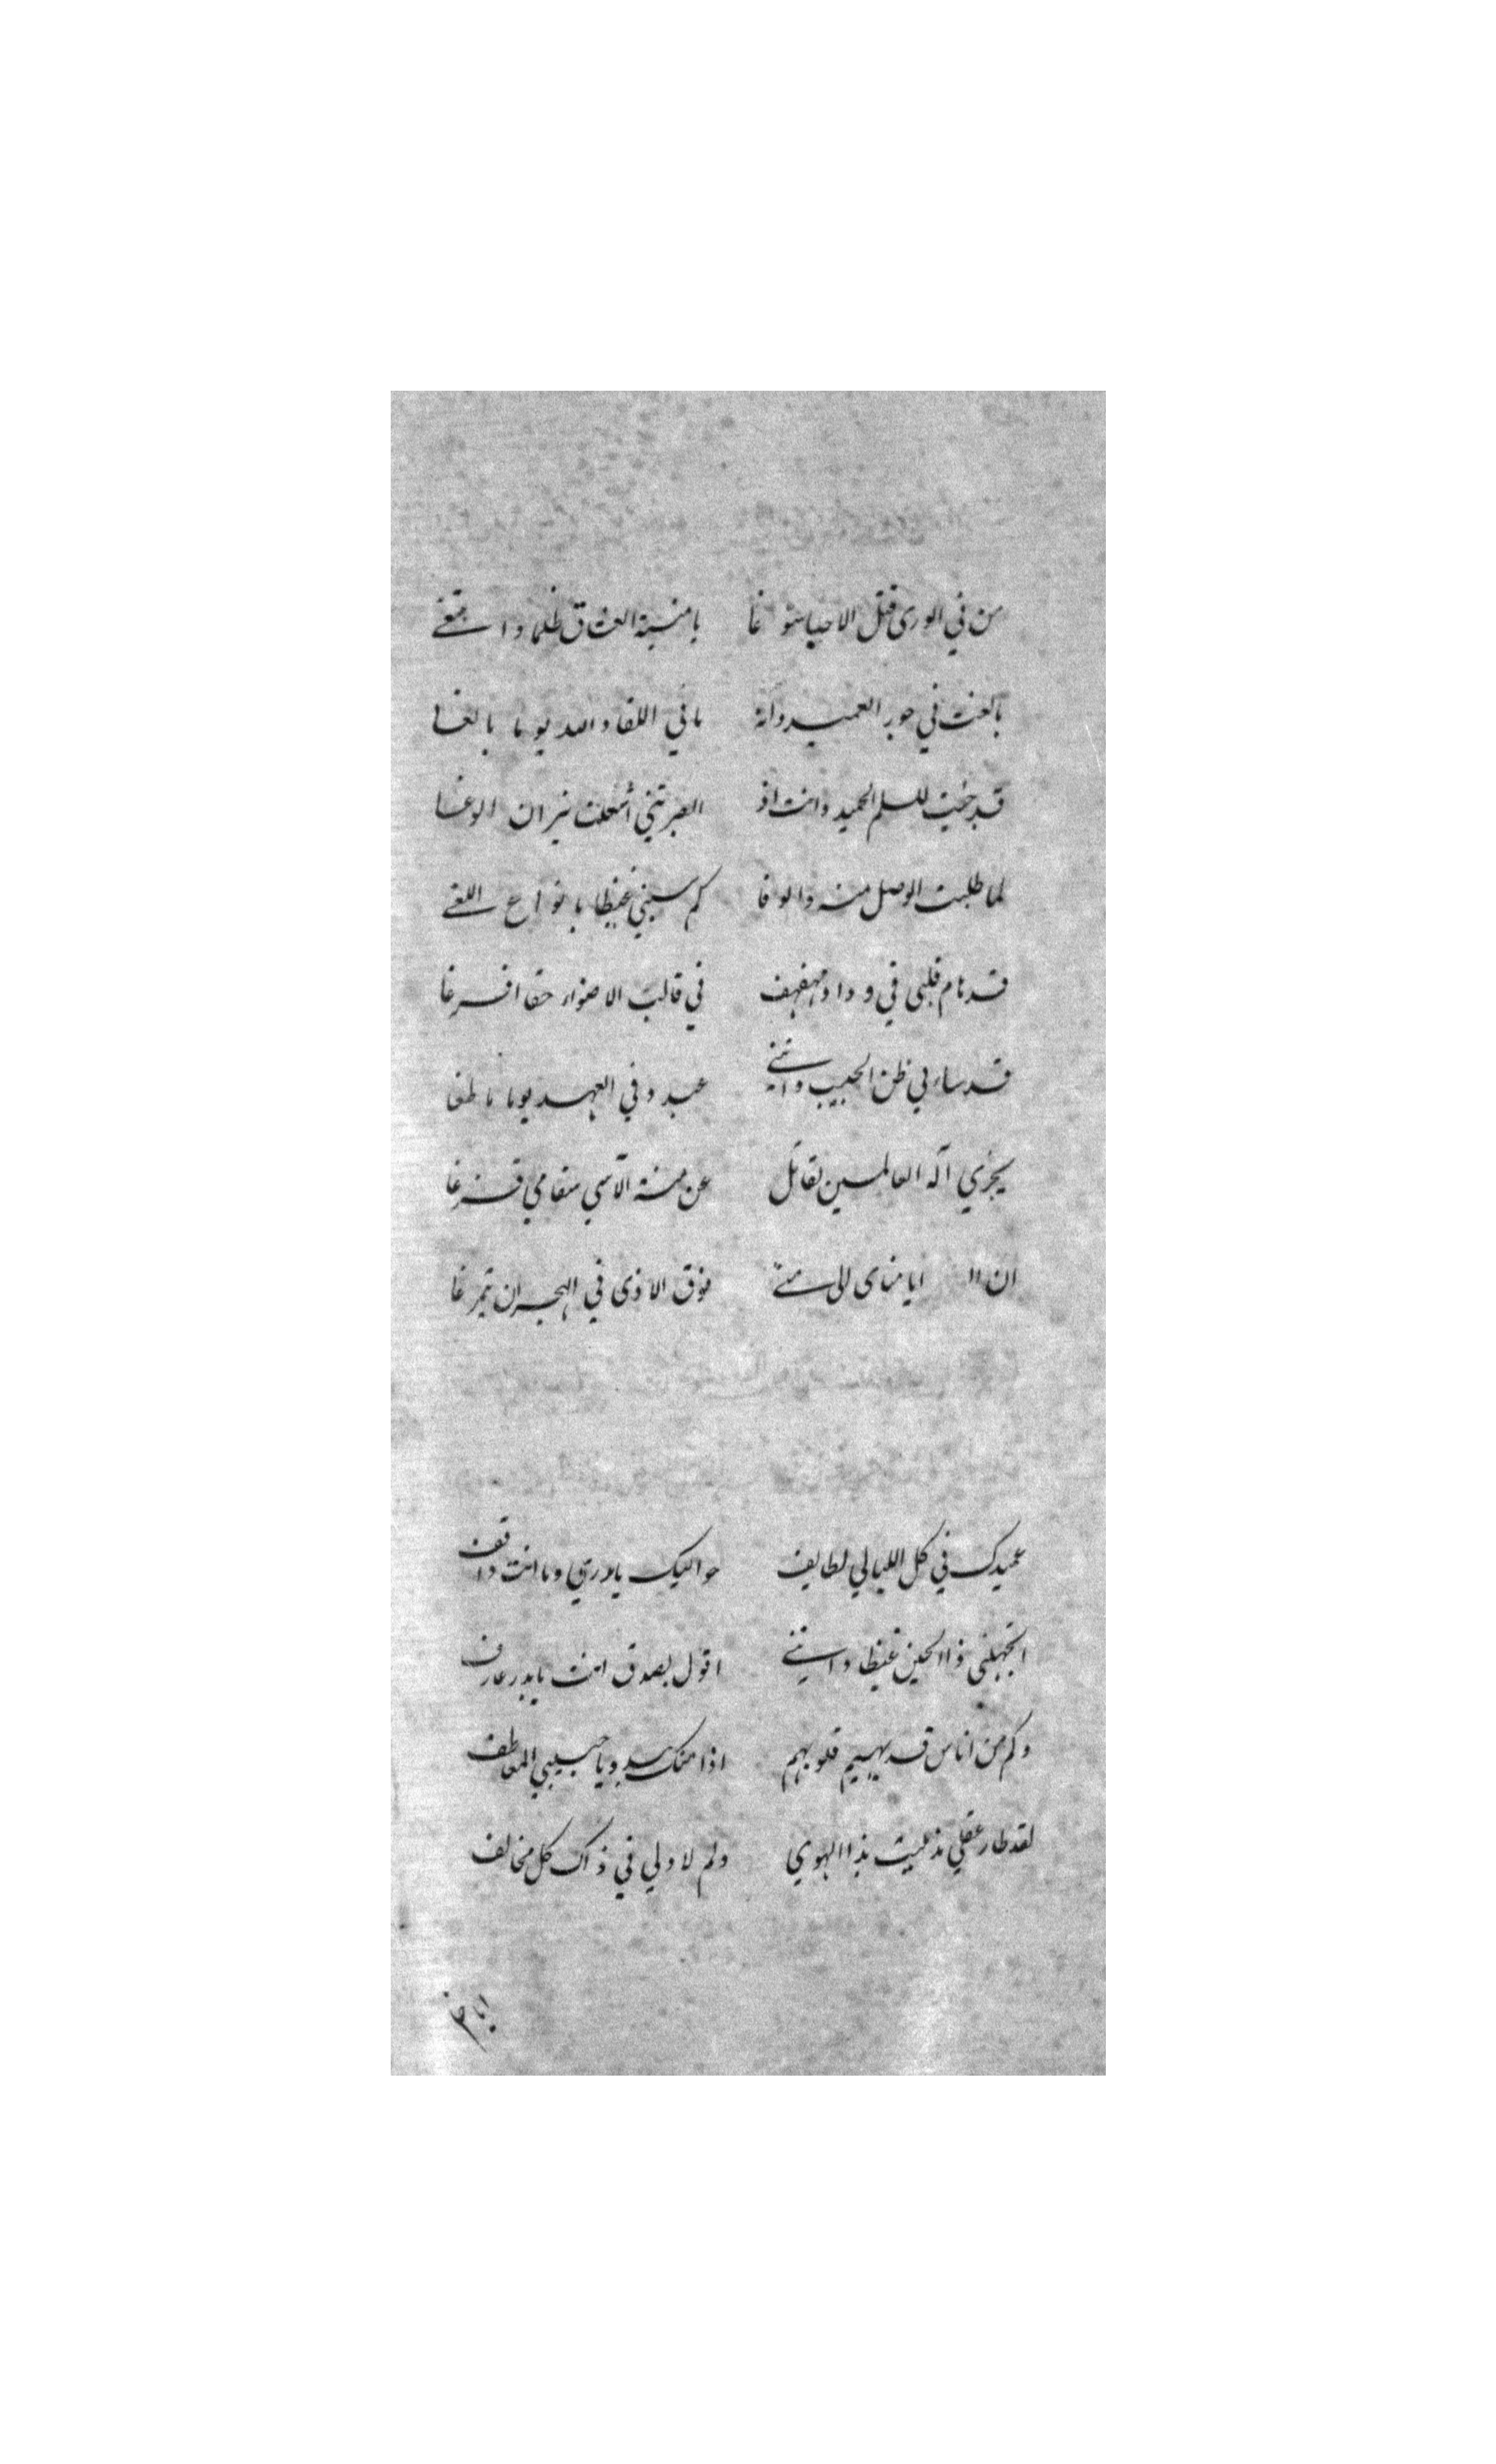 من في الورى قتل الاحبا سوغا يا منية العشاق ظلما وابتغى
بالغت في جور العميد وانه ما في اللقا والله يوما بالغا
قد جئت للسلم الحميد وانت اذ ابصرتني اشعلت نيران الوغا
لما طلبت الوصل منه والوفا كم سبني غيظا بانواع اللغى
قد هام قلبي في وداد مهفهف في قالب الاضرار حقا افرغا
قد ساء بي ظن الحبيب وانني عبد وفي العهد يوما ما طغا
يجزي آله العالمين لقاتل عن منة الآسي سقامي فرغا
ان ايا مناى الى متى فوق الاذى في الهجران تمرغا
عميدك في كل الليالي لطايف حواليك يا بدري وما انت واقف
اتجهلني ذا الحين غيظا وانني اقول بصدق انت يا بدر عارف
وكم من اناس قد يهيم قلوبهم اذا منك يبدو يا حبيبي المعاطف
لقد طار عقلي مذ بليت بذا الهوي ولم لا ولي في ذاك كل مخالف